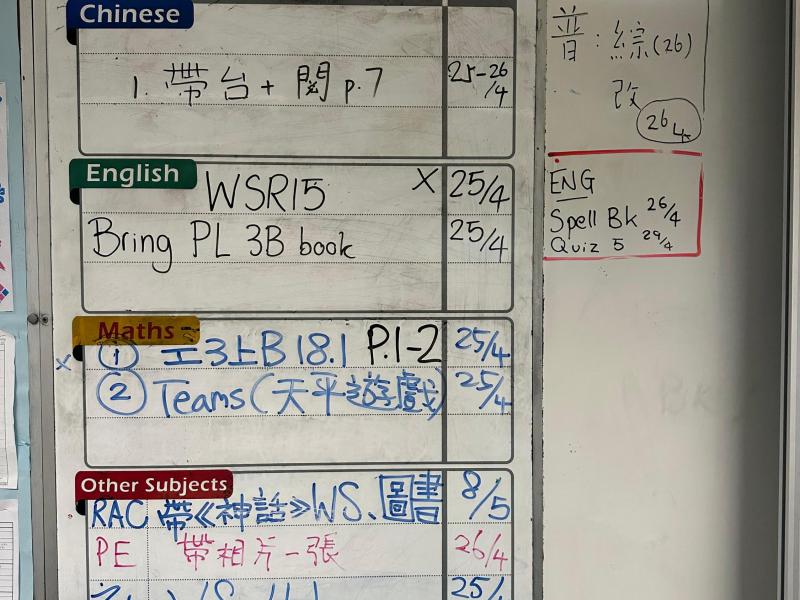 Chinese
1. 帶台 + 閱 p.7 25-26/4
English
WSR15 X 25/4
Bring PL 3B book 25/4
Maths
X ① 工3上B 18.1 P.1-2 25/4
② Teams (天平遊戲) 25/4
Other Subjects
RAC 帶《神話》WS、圖書 8/5
PE 帶相片一張 26/4
25/
普：綜(26)
改
26/4
ENG
Spell Bk 26/4
Quiz 5 29/4